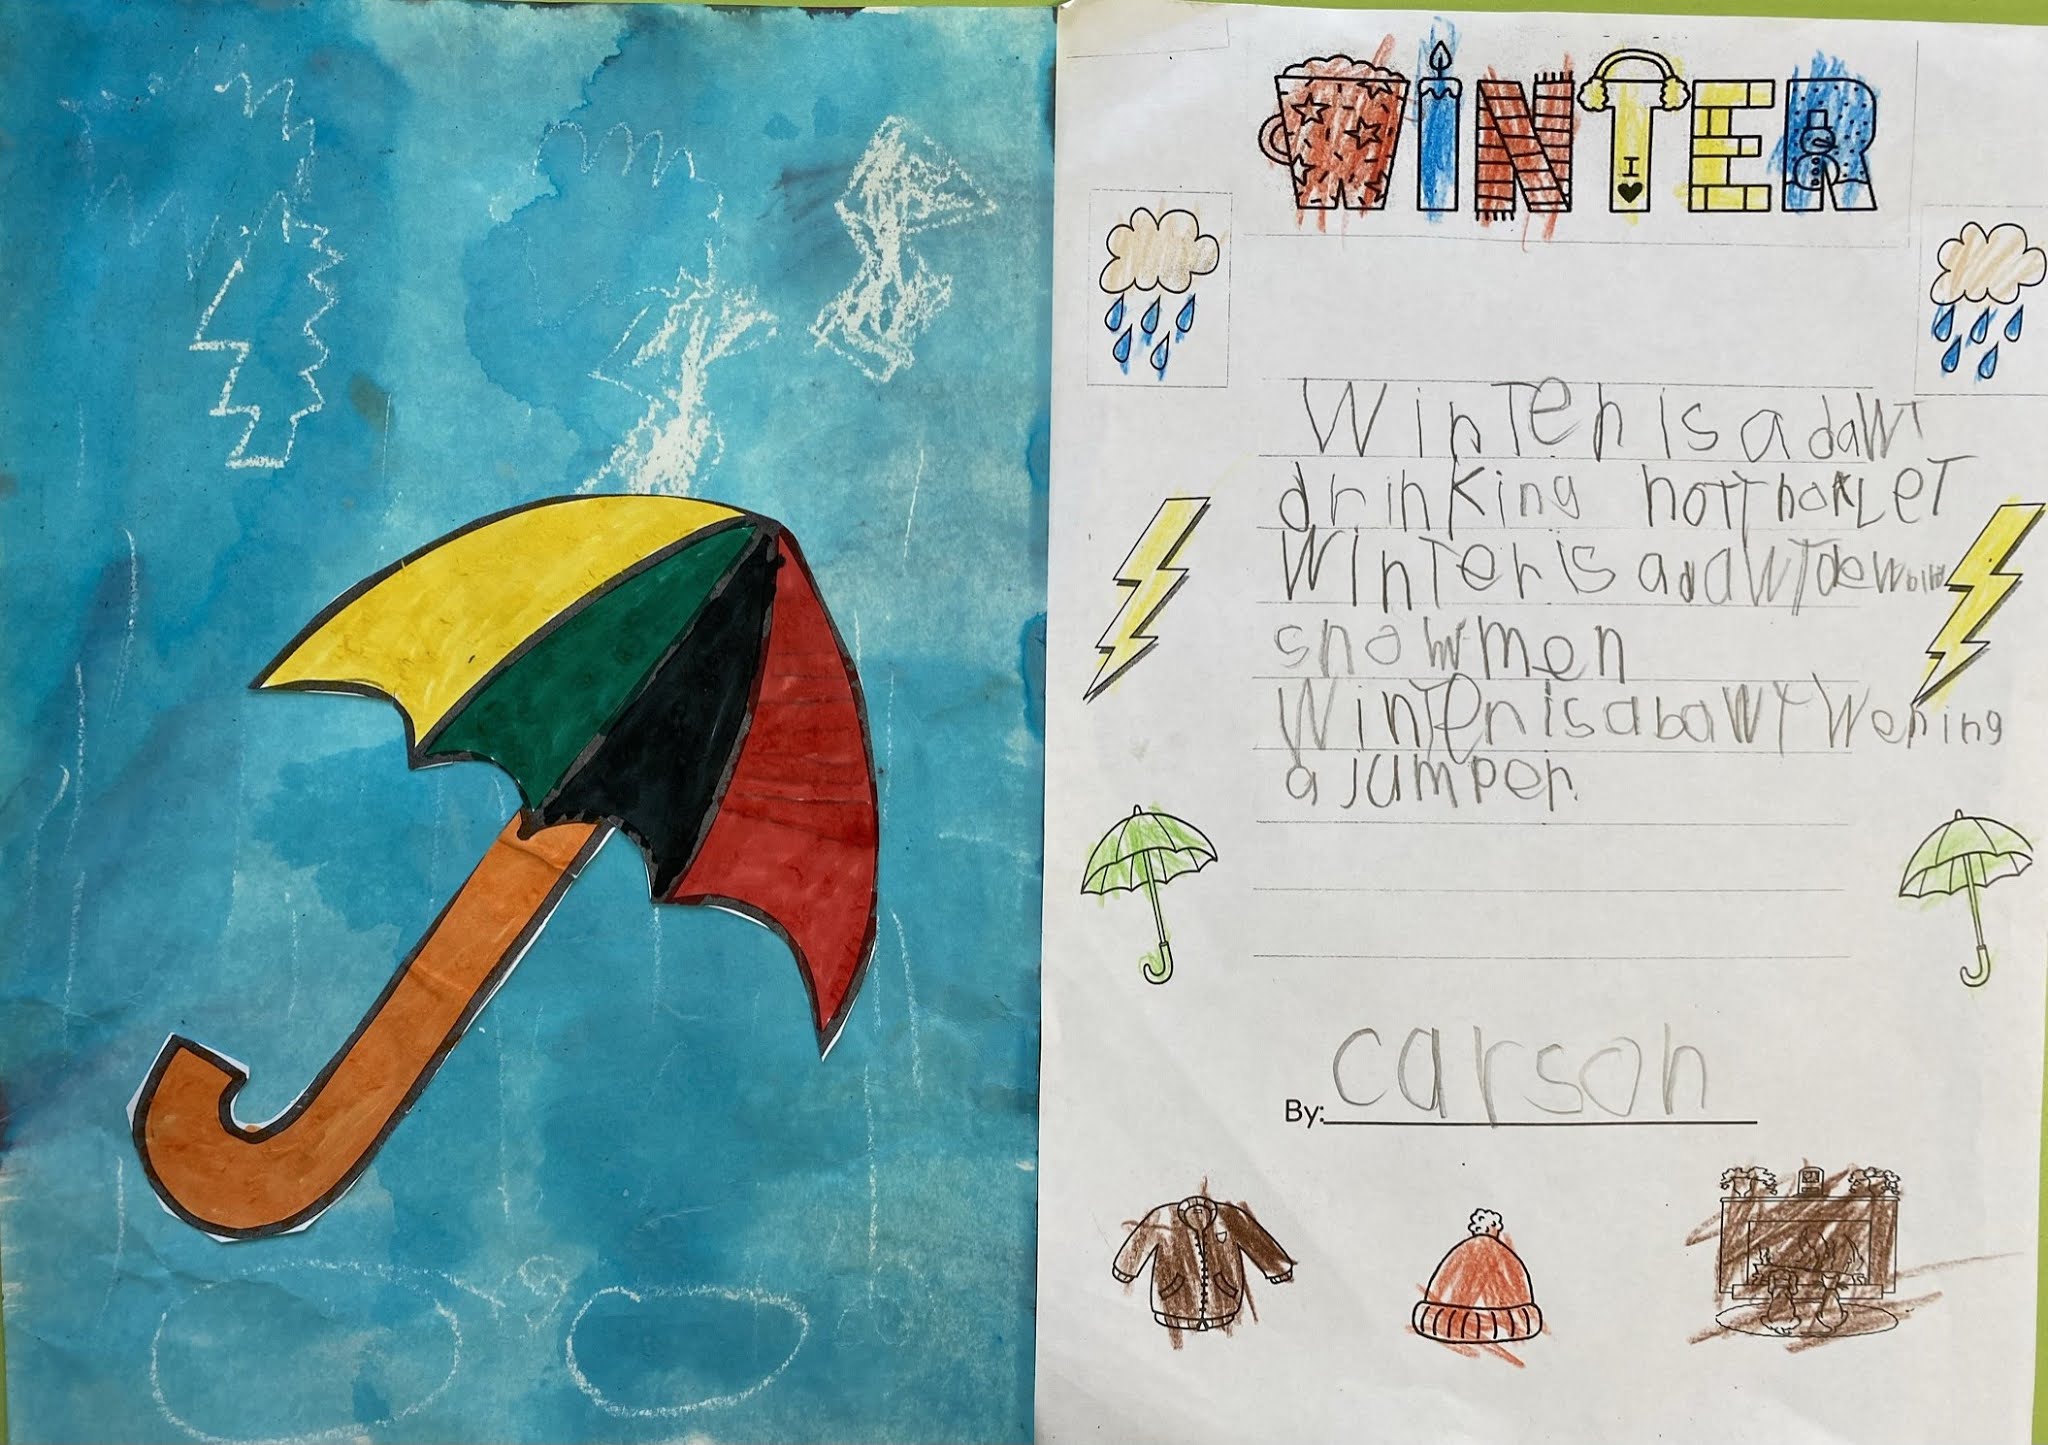 WINTER
I
Winter is a dawt
drinking hotT hoKLeT
Winter is a dawt
snowmen
Winter is a bawt Wering
a jumper.
By: carson